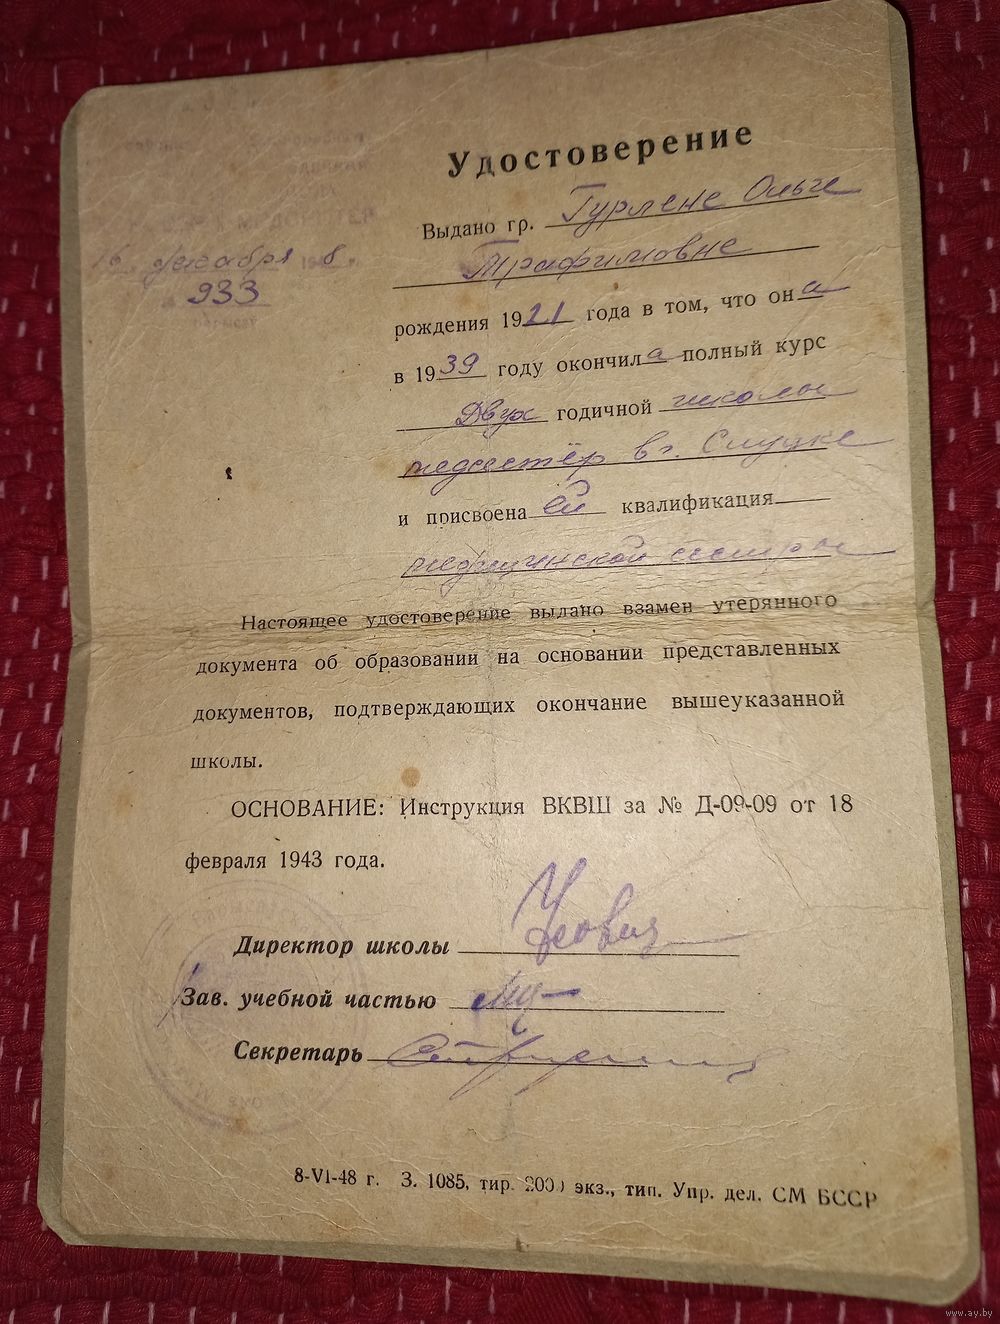 Удостоверение
Выдано гр. Гурлене Ольге
Трафимовне
16 декабря 8
933
рождения 1921 года в том, что она
в 1939 году окончила полный курс
Двух годичной школы
медсестёр в г. Слуцке
и присвоена ей квалификация
медицинской сестры
Настоящее удостоверение выдано взамен утерянного
документа об образовании на основании представленных
документов, подтверждающих окончание вышеуказанной
школы.
ОСНОВАНИЕ: Инструкция ВКВШ за № Д-09-09 от 18
февраля 1943 года.
Директор школы
Зав. учебной частью
Секретарь
8-VI-48 г. З. 1085, тир. 2000 экз., тип. Упр. дел. СМ БССР
www.ay.by